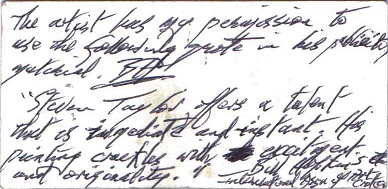 The artist has my permission to
use the following quote in his publicity
material.
"Steven Taylor offers a talent
that is immediate and instant. His
painting crackles with excitement
and originality.
International Assn of Art
Critics